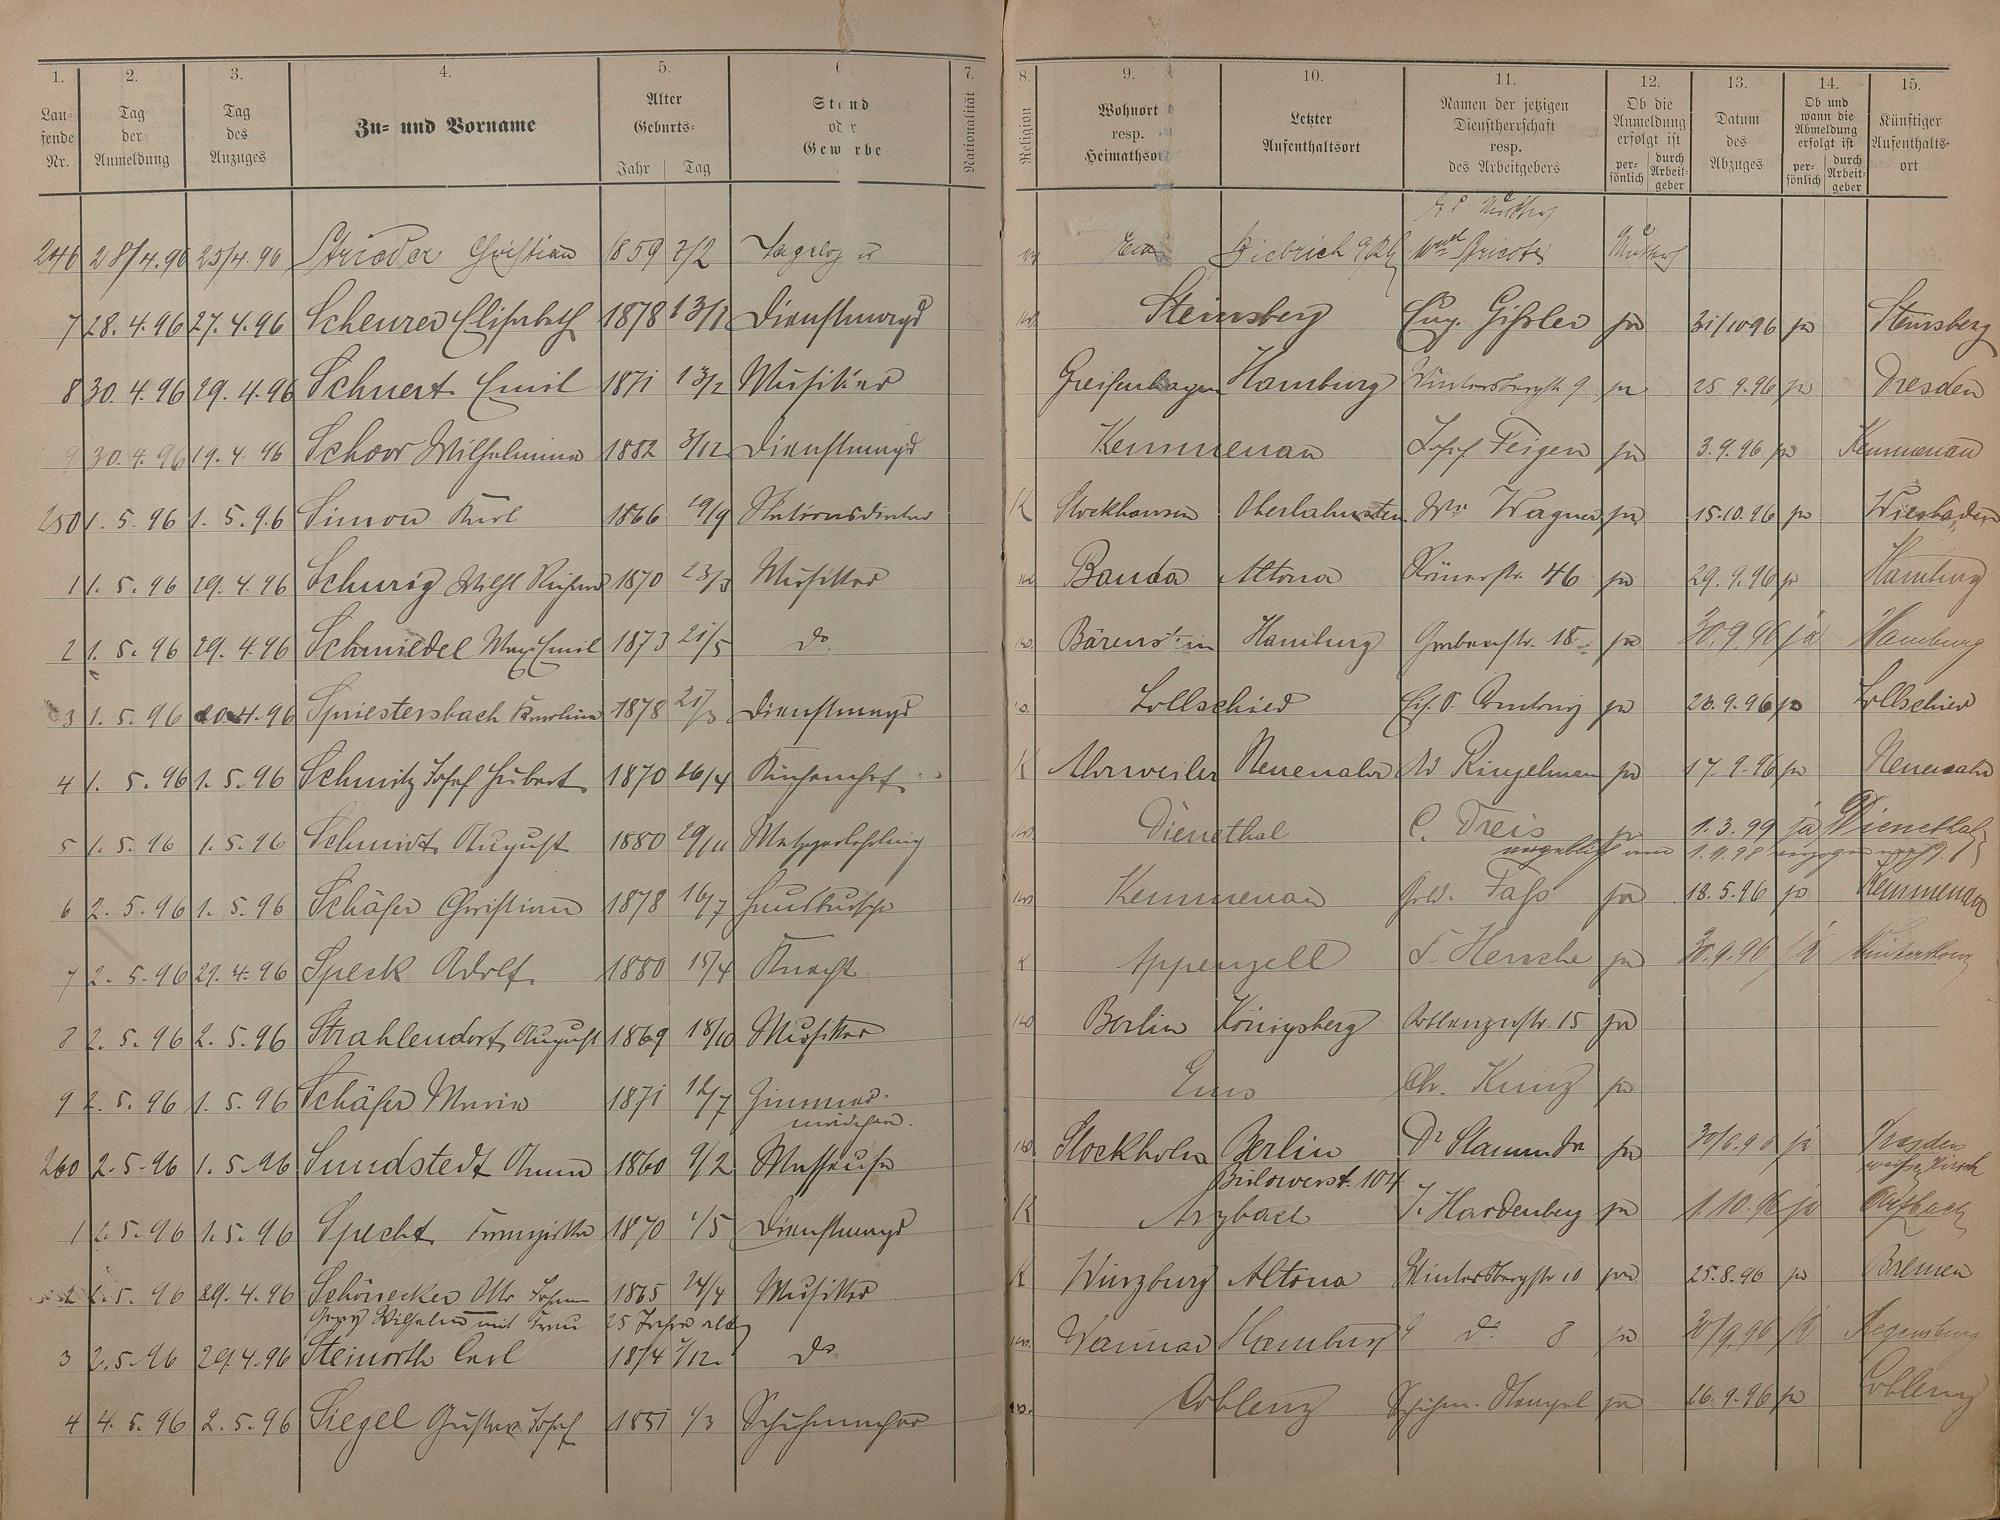 1. 2. 3. 4. 5. 6 7. 8. 9. 10. 11. 12. 13. 14. 15.
Lau-
fende
Nr.
Tag
der
Anmeldung
Tag
des
Anzuges
Zu- und Vorname
Alter
Geburts-
Jahr Tag
Stand
oder
Gewerbe
Nationalität
Religion
Wohnort
resp.
Heimathsort
Letzter
Aufenthaltsort
Namen der jetzigen
Dienstherrschaft
resp.
des Arbeitgebers
Ob die
Anmeldung
erfolgt ist
per-
sönlich
durch
Arbeit-
geber
Datum
des
Abzuges
Ob und
wann die
Abmeldung
erfolgt ist
per-
sönlich
durch
Arbeit-
geber
Künftiger
Aufenthalts-
ort
246 28/4.96 25/4.96 Strieder Christian 1859 2/2 Biebrich
7 28.4.96 27.4.96 Scheurer Elisabeth 1878 13/1 Dienstmagd Steinsberg Eug. Gißler ja 31/10 96 ja Steinsberg
8 30.4.96 29.4.96 Schnert Emil 1871 13/2 Musiker Greifenhagen Hamburg Wintersbergstr. 9 ja 25.9.96 ja Dresden
9 30.4.96 19.4.96 Schoor Wilhelmine 1882 3/12 Dienstmagd Kemmenau Josef Feigen ja 3.9.96 ja Kemmenau
250 1.5.96 1.5.96 Simon Karl 1866 29/9 K Stockhausen Oberlahnstein Wagner ja 15.10.96 ja Wiesbaden
1 1.5.96 29.4.96 Schurig Wilh Richard 1870 23/3 Musiker Bauda Altona Römerstr. 46 ja 29.9.96 ja Hamburg
2 1.5.96 29.4.96 Schmiedel Max Emil 1873 21/5 do. Bärenstein Hamburg Grabenstr. 18 ja 30.9.96 ja Hamburg
3 1.5.96 20.4.96 Spriestersbach Karoline 1878 21/3 Dienstmagd Lollschied ja 20.9.96 ja Lollschied
4 1.5.96 1.5.96 Schmitz Josef Hubert 1870 26/4 Küchenchef K Ahrweiler Neuenahr Ringelmann ja 17.9.96 ja Neuenahr
5 1.5.96 1.5.96 Schmidt August 1880 29/11 Metzgerlehrling Dienethal C. Treis ja 1.3.99 ja Dienethal
angeblich am 1.11.98
6 2.5.96 1.5.96 Schäfer Christian 1878 16/7 Hausbursche Kemmenau Faß ja 18.5.96 ja Kemmenau
7 2.5.96 29.4.96 Speck Adolf 1880 15/4 Knecht K Appenzell F. Hersche ja 30.9.96 ja
8 2.5.96 2.5.96 Strahlendorf August 1869 18/10 Musiker Berlin Königsberg Coblenzerstr. 15 ja
9 2.5.96 1.5.96 Schäfer Maria 1871 12/7 Zimmer- Ems Chr. Kunz ja
mädchen.
260 2.5.96 1.5.96 Sundstedt Anna 1860 9/2 Masseuse Stockholm Berlin Dr Stammler ja 30/6.96 ja Dresden
Bülowerst. 104 weißer Hirsch
1 2.5.96 1.5.96 Specht Franziska 1870 1/5 Dienstmagd K Arzbach J. Hardenberg ja 1.10.96 ja Arzbach
2 2.5.96 29.4.96 Schönecker Otto Johann 1865 24/4 Musiker K Würzburg Altona Wintersbergstr 10 ja 25.8.96 ja Bremen
Georg Wilhelm mit Frau 25 Jahre alt
3 2.5.96 29.4.96 Steinorth Carl 1874 1/12 do Weimar Hamburg do 8 ja 30/9.96 ja Regensburg
4 4.5.96 2.5.96 Siegel Gustav Josef 1851 1/3 Schuhmacher Coblenz Schuhm. Hempel ja 26.9.96 ja Coblenz